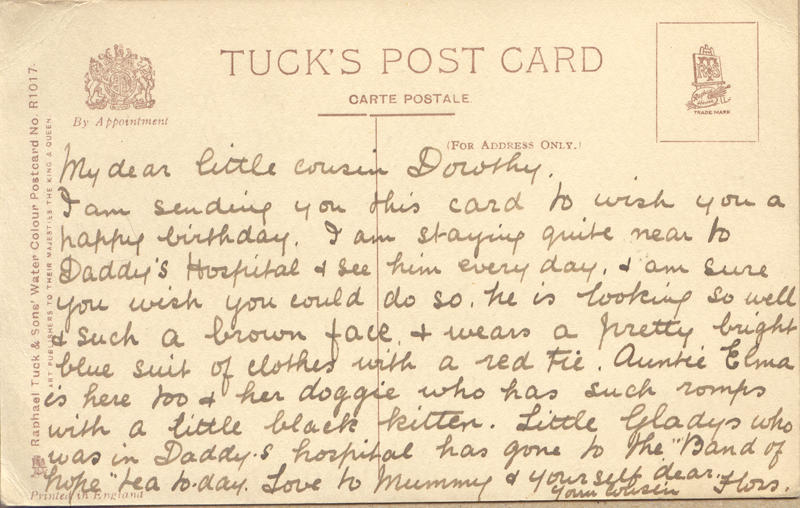 TUCK'S POST CARD
CARTE POSTALE.
By Appointment
(FOR ADDRESS ONLY.)
TRADE MARK
Raphael Tuck & Sons' Water Colour Postcard No. R1017.
ART PUBLISHERS TO THEIR MAJESTIES THE KING & QUEEN.
My dear little cousin Dorothy.
I am sending you this card to wish you a
happy birthday. I am staying quite near to
Daddy's Hospital & see him every day. & am sure
you wish you could do so. he is looking so well
& such a brown face, & wears a pretty bright
blue suit of clothes with a red tie. Auntie Elma
is here too & her doggie who has such romps
with a little black kitten. Little Gladys who
was in Daddy's hospital has gone to the "Band of
hope" tea to-day. Love to Mummy & yourself dear.
your cousin Floss.
Printed in England